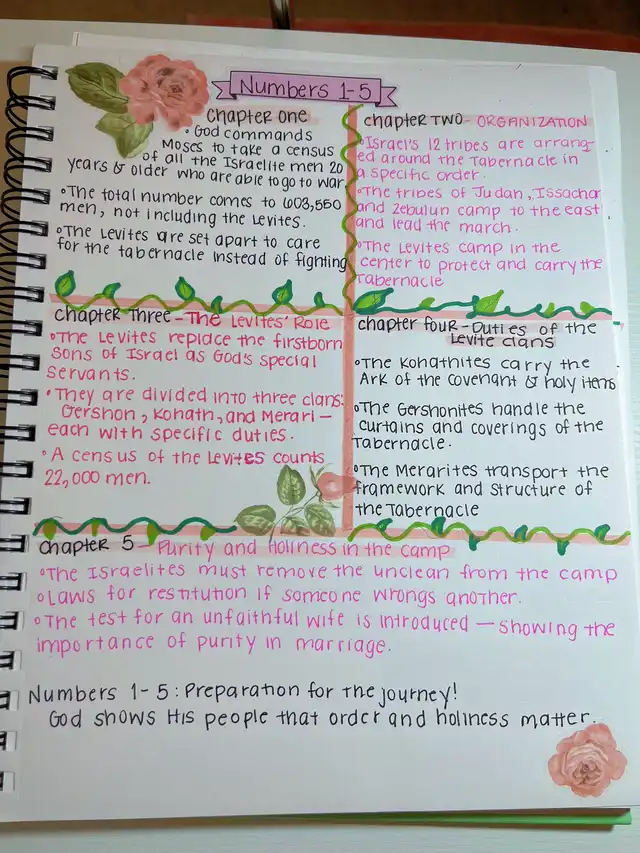 Numbers 1-5
Chapter one
• God commands
Moses to take a census
of all the Israelite men 20
years & older who are able to go to war
• The total number comes to 603,550
men, not including the Levites.
• The Levites are set apart to care
for the tabernacle instead of fighting
chapter TWO - ORGANIZATION
• Israel's 12 tribes are arrang-
ed around the Tabernacle in
a specific order.
• The tribes of Judah, Issachar
and Zebulun camp to the east
and lead the march.
• The Levites camp in the
center to protect and carry the
Tabernacle
chapter Three - The Levites' Role
• The Levites replace the firstborn
sons of Israel as God's special
servants.
• They are divided into three clans:
Gershon, Kohath, and Merari —
each with specific duties.
• A census of the Levites counts
22,000 men.
chapter four - Duties of the
Levite clans
• The Kohathites carry the
Ark of the covenant & holy items
• The Gershonites handle the
curtains and coverings of the
Tabernacle.
• The Merarites transport the
framework and structure of
the Tabernacle
chapter 5 - Purity and Holiness in the camp
• The Israelites must remove the unclean from the camp
• Laws for restitution if someone wrongs another.
• The test for an unfaithful wife is introduced — showing the
importance of purity in marriage.
Numbers 1-5: Preparation for the journey!
God shows His people that order and holiness matter.